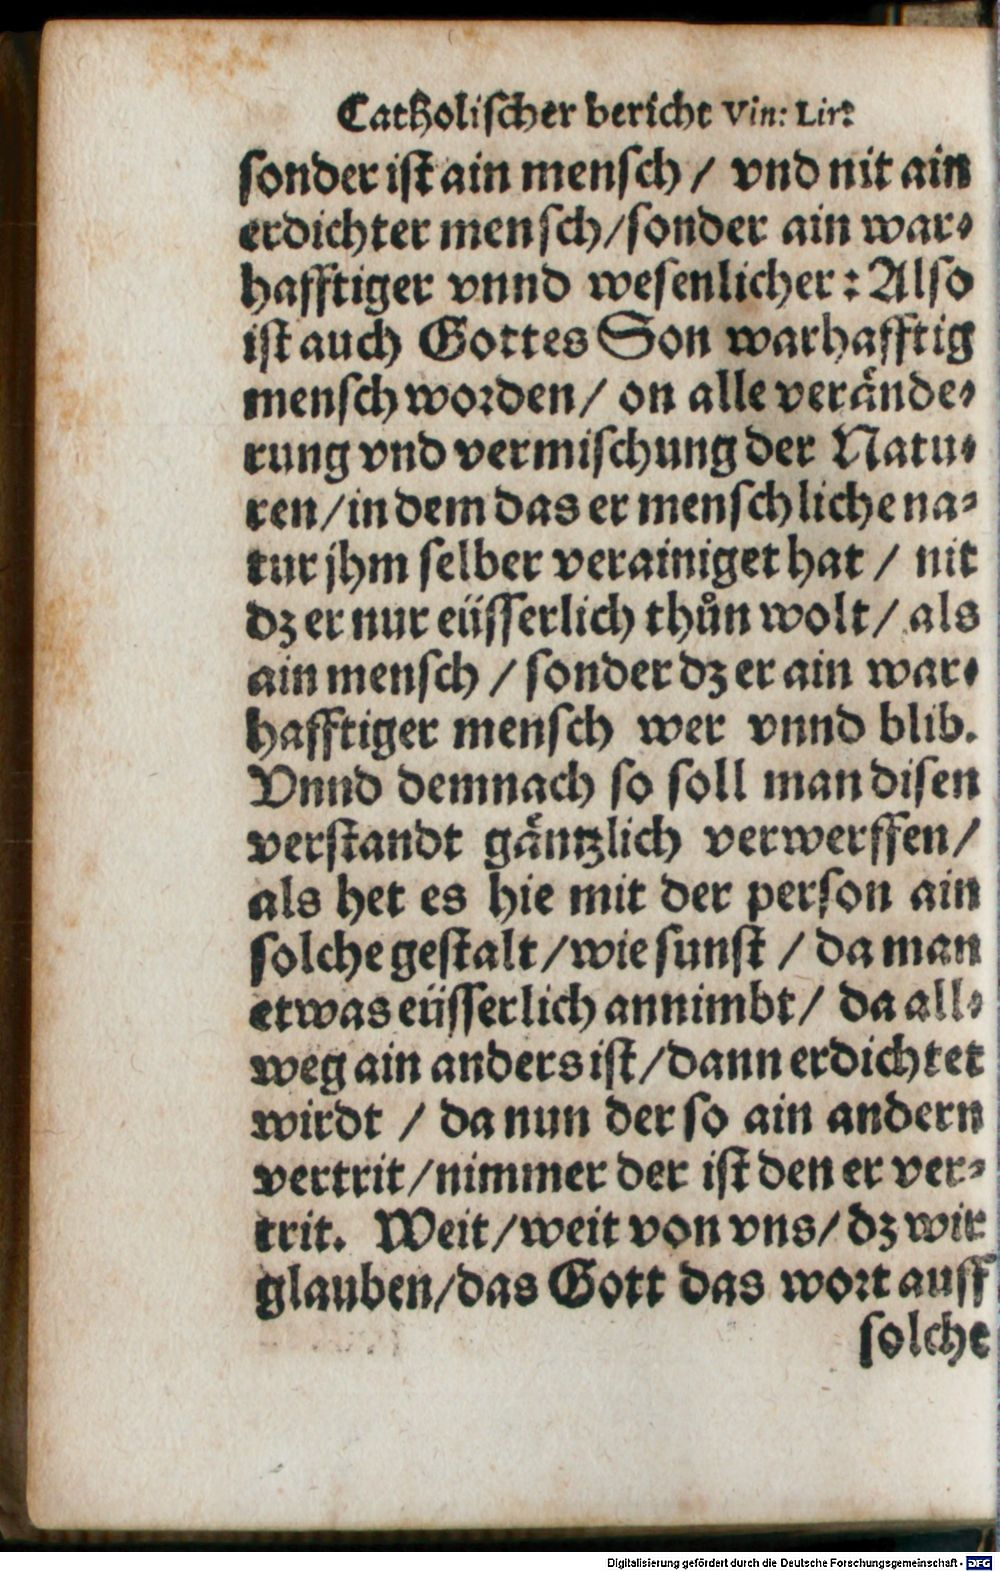 Catholischer bericht Vin: Lir:
sonder ist ain mensch / vnd nit ain
erdichter mensch/sonder ain war⸗
hafftiger vnnd wesenlicher: Also
ist auch Gottes Son warhafftig
mensch worden/ on alle verände⸗
rung vnd vermischung der Natu⸗
ren/in dem das er menschliche na⸗
tur jhm selber verainiget hat / nit
dz er nur eüsserlich thůn wolt/ als
ain mensch / sonder dz er ain war⸗
hafftiger mensch wer vnnd blib.
Vnnd demnach so soll man disen
verstandt gäntzlich verwerffen/
als het es hie mit der person ain
solche gestalt/wie sunst / da man
etwas eüsserlich annimbt/ da all⸗
weg ain anders ist/dann erdichtet
wirdt / da nun der so ain andern
vertrit/nimmer der ist den er ver⸗
trit. Weit/weit von vns/ dz wir
glauben/das Gott das wort auff
solche
Digitalisierung gefördert durch die Deutsche Forschungsgemeinschaft - DFG